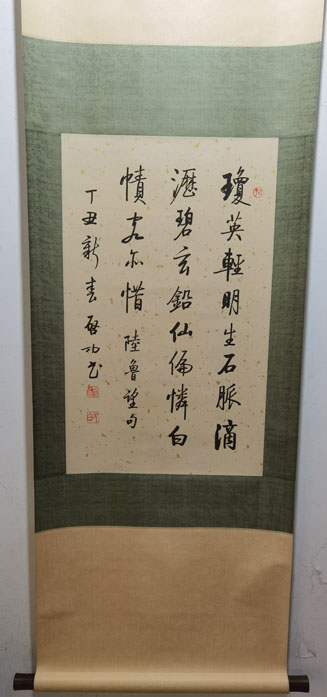 瓊英輕明生石脈滴
瀝碧玄鉛仙偏憐白
幘客亦惜 陸魯望句
丁丑新春 啟功書